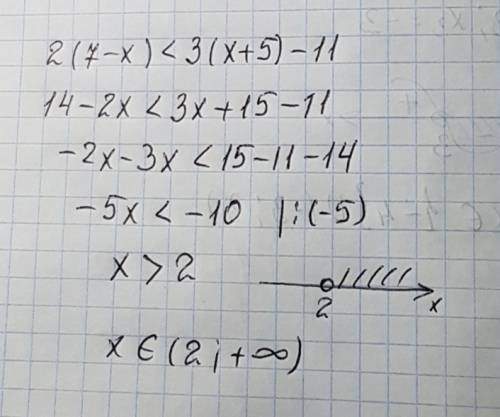 2(7-x)<3(x+5)-11
14-2x<3x+15-11
-2x-3x<15-11-14
-5x<-10 |:(-5)
x>2
2 x
x∈(2;+∞)